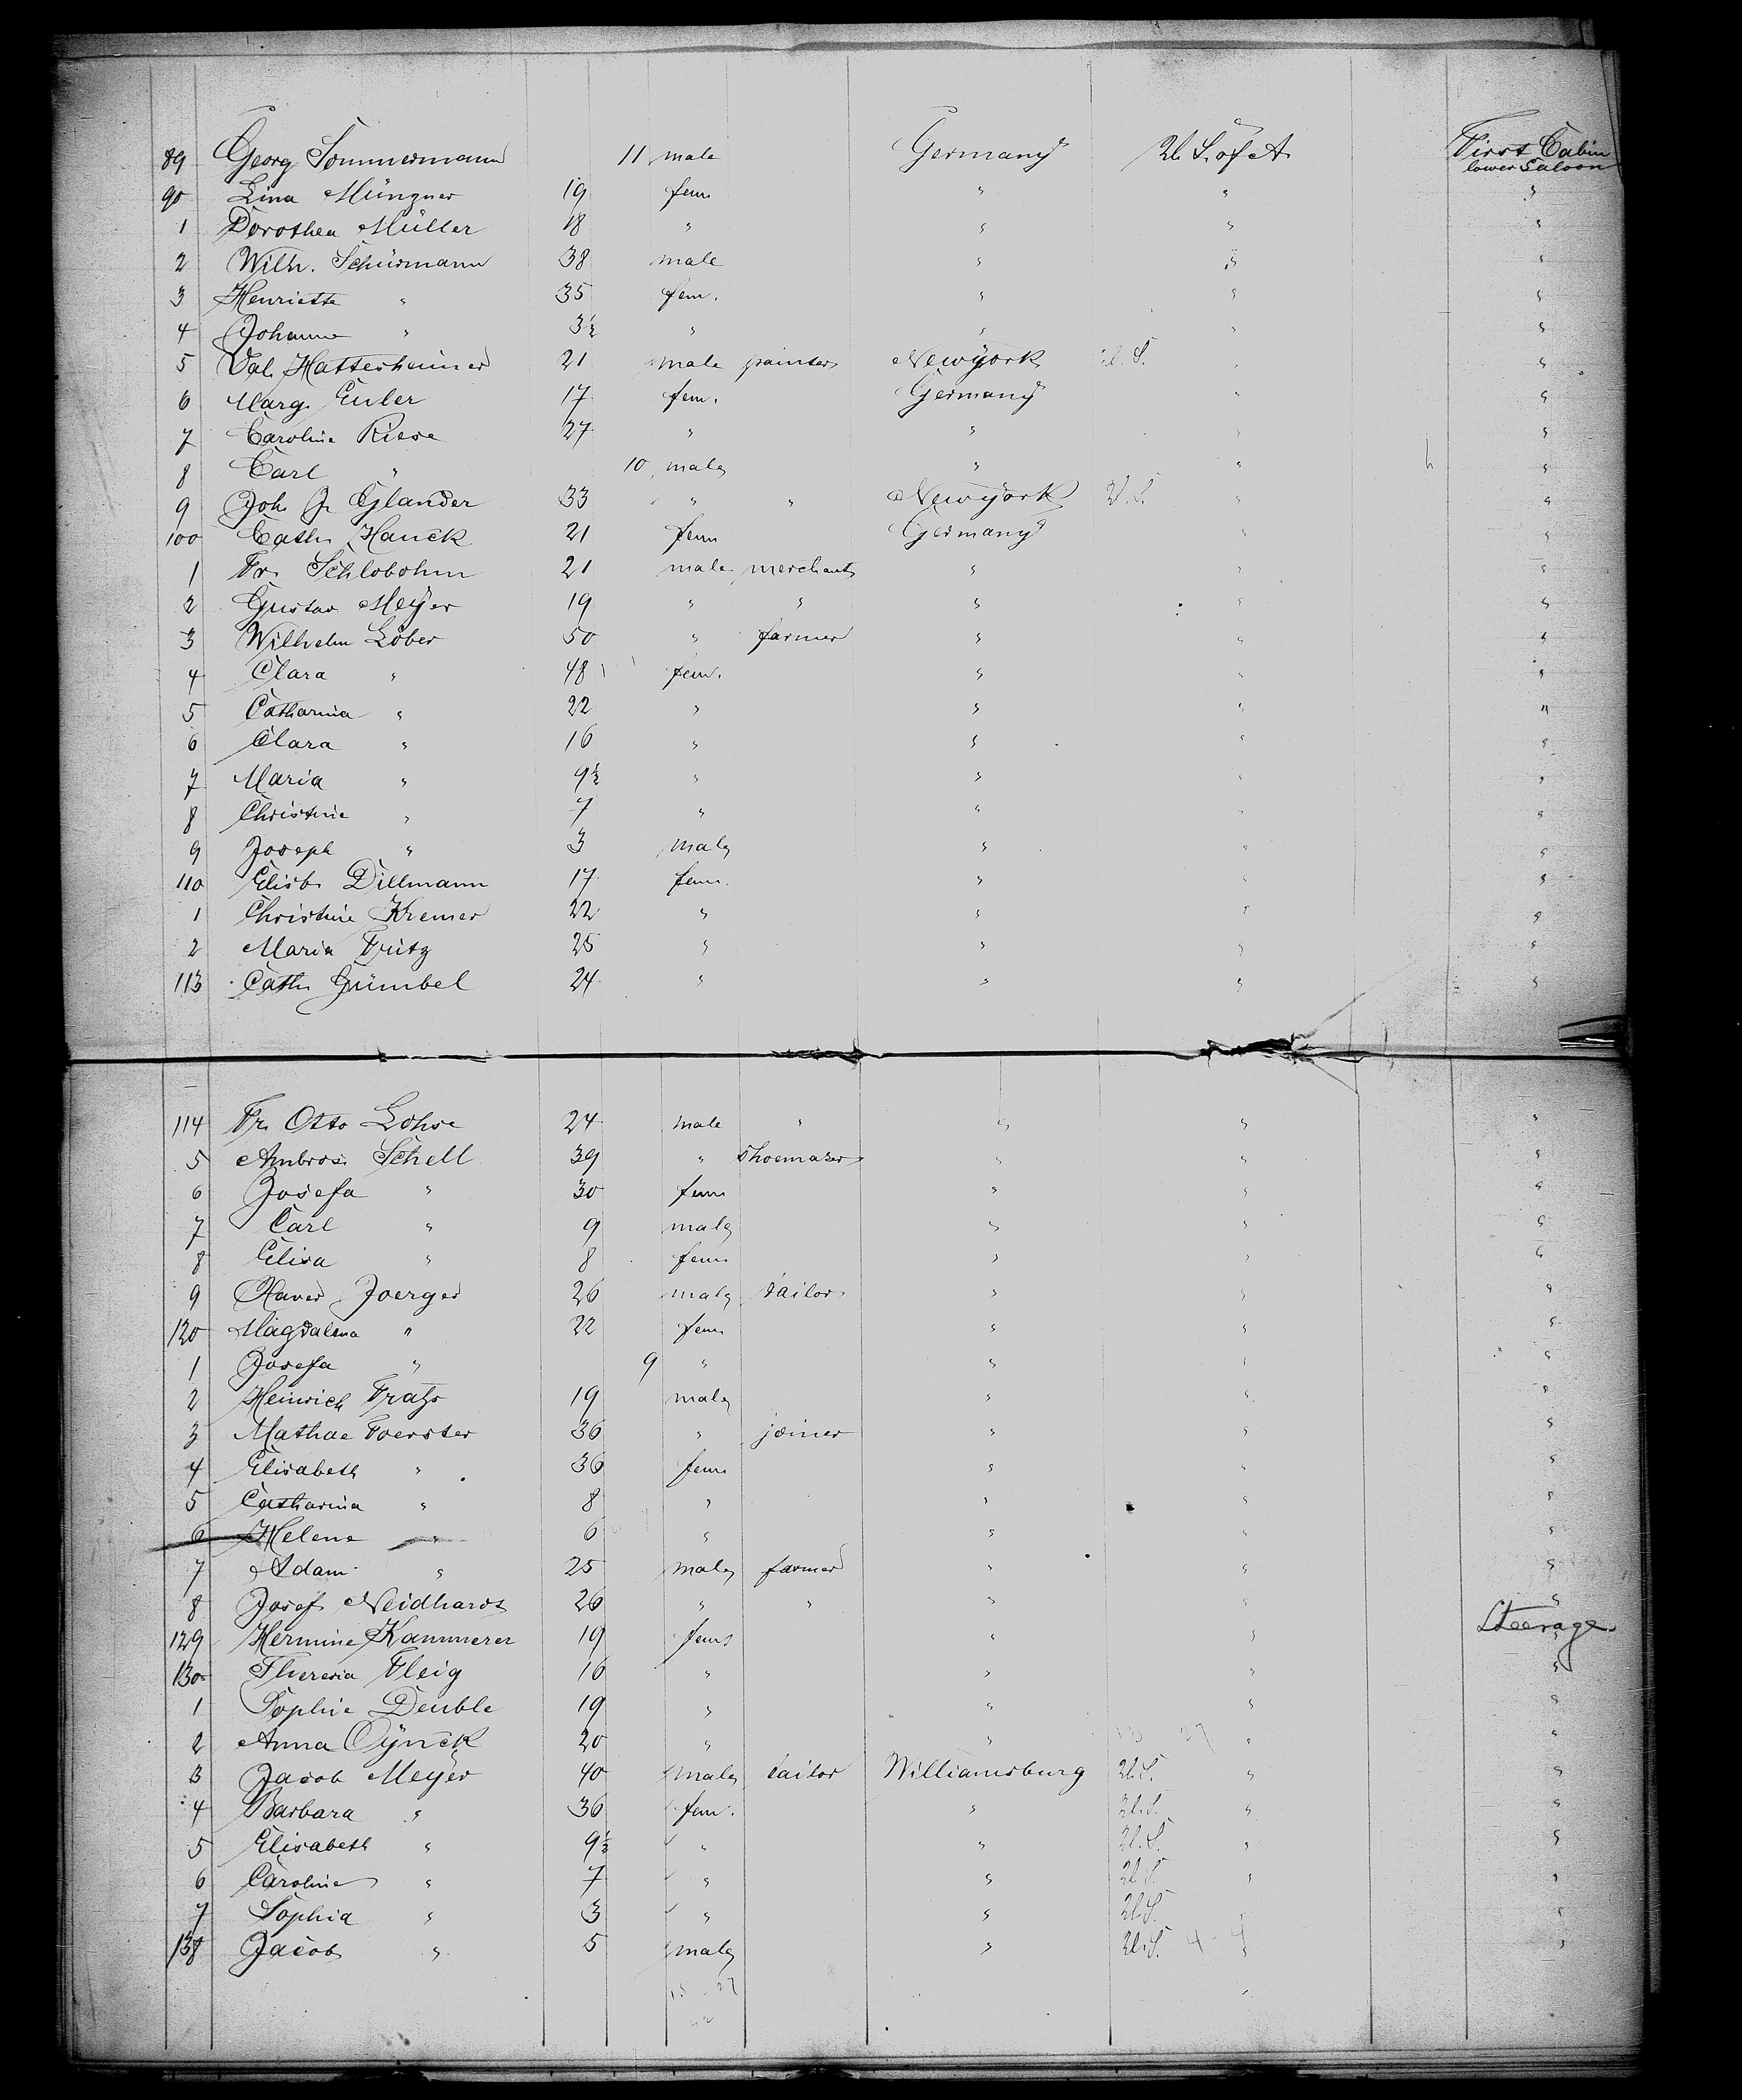 89 Georg Sommermann 11 male Germany U. S. of A. First Cabin
lower Saloon
90 Lina Münzner 19 fem " " "
1 Dorothea Müller 18 " " " "
2 Wilh. Schürmann 38 male " " "
3 Henriette " 35 fem. " " "
4 Johanne " 3½ " " " "
5 Val. Hattesheimer 21 male painter Newyork U. S. " "
6 Marg. Euler 17 fem. Germany " "
7 Caroline Riese 27 " " " "
8 Carl " 10 male " " "
9 Joh. Glander 33 " " Newyork U. S. " "
100 Cath. Hauck 21 fem Germany " "
1 Fr. Schlobohm 21 male merchant " " "
2 Gustav Meyer 19 " " " " "
3 Wilhelm Löber 50 " farmer " " "
4 Clara " 48 fem. " " "
5 Catharina " 22 " " " "
6 Clara " 16 " " " "
7 Maria " 9½ " " " "
8 Christine " 7 " " " "
9 Joseph " 3 male " " "
110 Elisb. Dillmann 17 fem. " " "
1 Christine Kremer 22 " " " "
2 Maria Fritz 25 " " " "
113 Cath. Gümbel 24 " " " "
114 Fr. Otto Lohse 24 male " " " "
5 Ambros. Schell 39 " shoemaker " " "
6 Josefa " 30 fem " " "
7 Carl " 9 male " " "
8 Elisa " 8 fem " " "
9 Xaver Joerger 26 male tailor " " "
120 Magdalena " 22 fem " " "
1 Josefa " 9 " " " "
2 Heinrich 19 male " " "
3 Mathae Foerster 36 " joiner " " "
4 Elisabeth " 36 fem " " "
5 Catharina " 8 " " " "
6 Helene " 6 " " " "
7 Adam " 25 male farmer " " "
8 Josef Neidhardt 26 " " " " "
129 Hermine Kammerer 19 fem " " Steerage
130 Theresia Fleig 16 " " " "
1 Sophie Deuble 19 " " " "
2 Anna Oÿnck 20 " " " "
3 Jacob Meyer 40 male tailor Williamsburg U. S. " "
4 Barbara " 36 fem. " U. S. " "
5 Elisabeth " 9½ " " U. S. " "
6 Caroline " 7 " " U. S. " "
7 Sophia " 3 " " U. S. " "
138 Jacob " 5 male " U. S. 4-4 " "